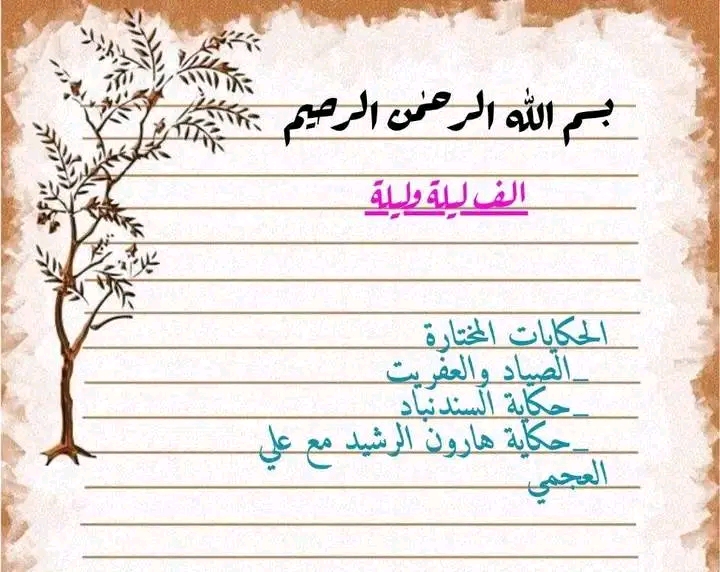 بسم الله الرحمٰن الرحيم
الف ليلة وليلة
الحكايات المختارة
_الصياد والعفريت
_حكاية السندنباد
_حكاية هارون الرشيد مع علي
العجمي